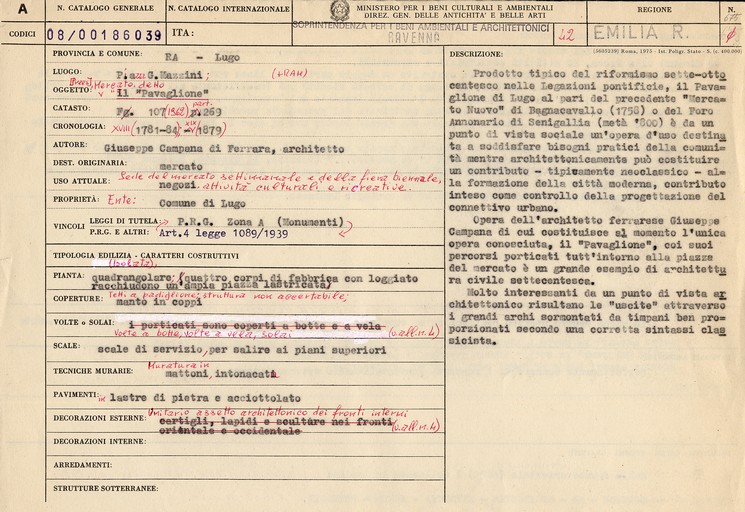 A
N. CATALOGO GENERALE
N. CATALOGO INTERNAZIONALE
MINISTERO PER I BENI CULTURALI E AMBIENTALI
DIREZ. GEN. DELLE ANTICHITA' E BELLE ARTI
REGIONE
N.
CODICI
08/00186039
ITA:
SOPRINTENDENZA PER I BENI AMBIENTALI E ARCHITETTONICI
RAVENNA
42
EMILIA R.
(5605239) Roma, 1975 - Ist. Poligr. Stato - S. (c. 400.000)
PROVINCIA E COMUNE: RA - Lugo
LUOGO: P.iazza G.Mazzini; (+RAM)
OGGETTO: Mercato, detto
il "Pavaglione"
CATASTO: Fg. 107 (1962) part. p.269
CRONOLOGIA: XVIII (1781-84) XIX (1879)
AUTORE: Giuseppe Campana di Ferrara, architetto
DEST. ORIGINARIA: mercato
USO ATTUALE: Sede del mercato settimanale e della fiera biennale,
negozi. attività culturali e ricreative.
PROPRIETÀ: Ente: Comune di Lugo
VINCOLI
LEGGI DI TUTELA: P.R.G. Zona A (Monumenti)
P.R.G. E ALTRI: Art.4 legge 1089/1939
TIPOLOGIA EDILIZIA - CARATTERI COSTRUTTIVI
(isolata).
PIANTA: quadrangolare; (quattro corpi di fabbrica con loggiato
racchiudono un'ampia piazza lastricata)
COPERTURE: Tetti a padiglione; struttura non accertabile;
manto in coppi
VOLTE o SOLAI: i porticati sono coperti a botte e a vela
Volte a botte, volte a vela, solai (v.all.n.4)
SCALE: scale di servizio, per salire ai piani superiori
TECNICHE MURARIE: Muratura in
mattoni, intonacata
PAVIMENTI: in lastre di pietra e acciottolato
DECORAZIONI ESTERNE: Unitario assetto architettonico dei fronti interni
cartigli, lapidi e sculture nei fronti (v.all.n.4)
orientale e occidentale
DECORAZIONI INTERNE:
ARREDAMENTI:
STRUTTURE SOTTERRANEE:
DESCRIZIONE:
Prodotto tipico del riformismo sette-otto
centesco nelle Legazioni pontificie, il Pava
glione di Lugo al pari del precedente "Merca
to Nuovo" di Bagnacavallo (1758) o del Foro
Annonario di Senigallia (metà '800) è da un
punto di vista sociale un'opera d'uso destina
ta a soddisfare bisogni pratici della comuni
tà mentre architettonicamente può costituire
un contributo - tipicamente neoclassico - al-
la formazione della città moderna, contributo
inteso come controllo della progettazione del
connettivo urbano.
Opera dell'architetto ferrarese Giuseppe
Campana di cui costituisce al momento l'unica
opera conosciuta, il "Pavaglione", coi suoi
percorsi porticati tutt'intorno alla piazza
del mercato è un grande esempio di architettu
ra civile settecentesca.
Molto interessanti da un punto di vista ar
chitettonico risultano le "uscite" attraverso
i grandi archi sormontati da timpani ben pro
porzionati secondo una corretta sintassi clas
sicista.